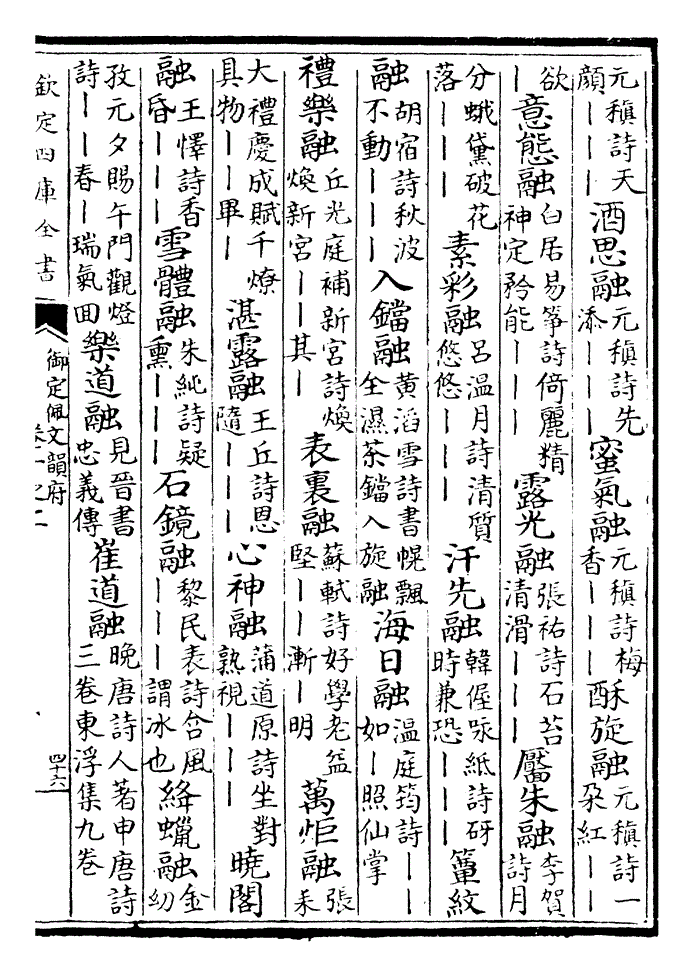 元稹詩天顔｜｜｜酒思融元稹詩先添｜｜｜蜜氣融元稹詩梅香｜｜｜酥旋融元稹詩一朶紅｜｜
欲｜意態融白居易箏詩倚麗精神定矜能｜｜｜露光融張祐詩石苔清滑｜｜｜靨朱融李賀詩月
分蛾黛破花落｜｜｜素彩融呂溫月詩清質悠悠｜｜｜汗先融韓偓咏紙詩砑時兼恐｜｜｜簟紋
融胡宿詩秋波不動｜｜｜入鐺融黃滔雪詩書幌飄全濕茶鐺入旋融海日融溫庭筠詩｜｜如｜照仙掌
禮樂融丘光庭補新宮詩煥煥新宮｜｜其｜表裏融蘇軾詩好學老益堅｜｜漸｜明萬炬融張耒
大禮慶成賦千燎具物｜｜畢｜湛露融王丘詩恩隨｜｜｜心神融蒲道原詩坐對熟視｜｜｜曉閣
融王惲詩香昏｜｜｜雪體融朱純詩疑熏｜｜｜石鏡融黎民表詩合風｜｜｜謂冰也絳蠟融金幼
孜元夕賜午門觀燈詩｜｜春｜瑞氣回樂道融見晉書忠義傳崔道融晚唐詩人著申唐詩三卷東浮集九卷
欽定四庫全書
御定佩文韻府
卷一之二
四十六